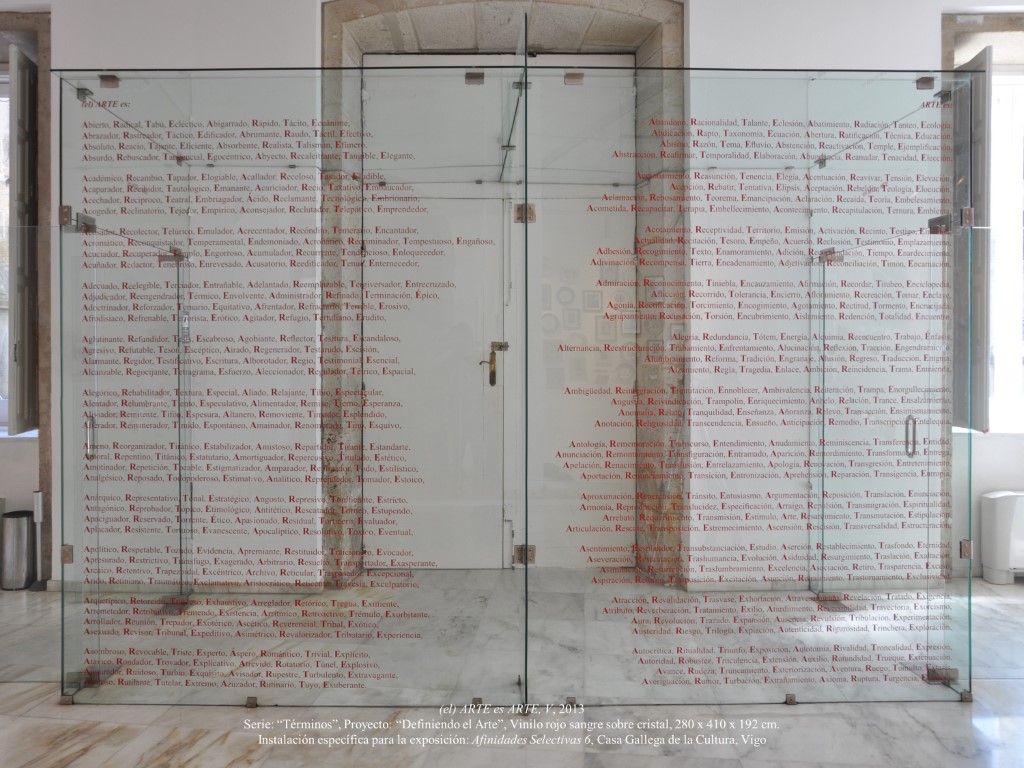 (el) ARTE es:
Abierto, Radical, Tabú, Ecléctico, Abigarrado, Rápido, Tácito, Ecuánime,
Abrazador, Rastreador, Táctico, Edificador, Abrumante, Raudo, Táctil, Efectivo,
Absoluto, Reacio, Tajante, Eficiente, Absorbente, Realista, Talismán, Efímero,
Absurdo, Rebuscador, Tangencial, Egocéntrico, Abyecto, Recalcitrante, Tangible, Elegante,
Académico, Recambio, Tapador, Elogiable, Acallador, Receloso, Tapador, Eludible,
Acaparador, Recatador, Tautológico, Emanante, Acariciador, Recio, Taxativo, Embaucador,
Acechador, Recíproco, Teatral, Embriagador, Ácido, Reclamante, Tecnológico, Embrionario,
Acogedor, Reclinatorio, Tejedor, Empírico, Aconsejador, Reclutador, Telepático, Emprendedor,
Recolector, Telúrico, Emulador, Acrecentador, Recóndito, Temerario, Encantador,
Acromático, Reconquistador, Temperamental, Endemoniado, Recriminador, Tempestuoso, Engañoso,
Acuciador, Recuperador, Engorroso, Acumulador, Recurrente, Tendencioso, Enloquecedor,
Acuñador, Redactor, Enrevesado, Acusatorio, Reedificador, Tenue, Enternecedor,
Adecuado, Reelegible, Tensador, Entrañable, Adelantado, Reemplazable, Tergiversador, Entrecruzado,
Adjudicador, Reengendrador, Térmico, Envolvente, Administrador, Refinado, Terminación, Épico,
Adoctrinador, Reforzador, Equitativo, Afrentador, Terrible, Erosivo,
Afrodisiaco, Refrenable, Erótico, Agitador, Refugio, Tertuliano, Erudito,
Aglutinante, Refundidor, Escabroso, Agobiante, Reflector, Textura, Escandaloso,
Agresivo, Refutable, Tesón, Escéptico, Airado, Regenerador, Testarudo, Escisión,
Alarmante, Regidor, Testificativo, Escritura, Alborotador, Regio, Testimonial, Esencial,
Alcanzable, Regocijante, Tetragrama, Esfuerzo, Aleccionador, Regulador, Tétrico, Espacial,
Alegórico, Rehabilitador, Textura, Especial, Aliado, Relajante, Tibio, Espectacular,
Alentador, Relumbrante, Tiento, Especulativo, Alimentador, Remiso, Tierno, Esperanza,
Aliviador, Remitente, Tifus, Espesura, Altanero, Removiente, Timador, Espléndido,
Alterador, Remunerador, Tímido, Espontáneo, Amainador, Tino, Esquivo,
Reorganizador, Titánico, Estabilizador, Amistoso, Reparador, Titilante, Estandarte,
Amoral, Repentino, Titánico, Estatutario, Amortiguador, Repercusivo, Titulado, Estético,
Amotinador, Repetición, Tocable, Estigmatizador, Amparador, Todo, Estilístico,
Analgésico, Reposado, Todopoderoso, Estimativo, Analítico, Tomador, Estoico,
Anárquico, Representativo, Tonal, Estratégico, Angosto, Represivo, Tonificante, Estricto,
Antagónico, Reprobador, Etimológico, Antitético, Rescatador, Estupendo,
Apaciguador, Reservado, Torrente, Ético, Apasionado, Residual, Evaluador,
Aplacador, Resistente, Evanescente, Apocalíptico, Resolutivo, Tóxico, Eventual,
Apolítico, Respetable, Tozudo, Evidencia, Apremiante, Restituidor, Evocador,
Apresurado, Restrictivo, Tránsfugo, Exagerado, Arbitrario, Resuelto, Exaltador,
Arcaico, Retentivo, Trapezoidal, Excéntrico, Archivo, Reticular, Excepcional,
Árido, Retiniano, Traumático, Exclamativo, Aristocrático, Excúlpatorio,
Arquetípico, Retomador, Exhaustivo, Arreglador, Retórico, Tregua, Eximente,
Arremetedor, Retributivo, Tremendo, Existencia, Artístico, Retroactivo, Trémulo, Exorbitante,
Arrullador, Reunión, Trepador, Exotérico, Ascético, Reverencial, Tribal, Exótico,
Asesuado, Revisor, Tribunal, Expeditivo, Asimétrico, Revalorizador, Tributario, Experiencia,
Asombroso, Revocable, Triste, Experto, Áspero, Romántico, Trivial, Explícito,
Rondador, Trovador, Explicativo, Atrevido, Rotatorio, Túnel, Explosivo,
Ruidoso, Exquisito, Avisador, Rupestre, Turbulento, Extravagante,
Rutilante, Tutelar, Extremo, Azurador, Rutinario, Tuyo, Exuberante.
ARTE es:
Abandono, Racionalidad, Talante, Eclosión, Abatimiento, Radiación, Tanteo, Ecología,
Abdicación, Rapto, Taxonomía, Ecuación, Abertura, Ratificación, Técnica, Educación,
Abismo, Razón, Tema, Efluvio, Abstención, Reactivación, Temple, Ejemplificación,
Abstracción, Reafirmar, Temporalidad, Elaboración, Abundancia, Reanudar, Tenacidad, Elección,
Reasunción, Tenencia, Elegía, Acentuación, Reavivar, Tensión, Elevación,
Acepción, Rebatir, Tentativa, Elipsis, Aceptación, Teología, Elocución,
Aclamación, Rebosamiento, Teorema, Emancipación, Aclaración, Recaída, Teoría, Embelesamiento,
Acometida, Recapacitar, Terapia, Embellecimiento, Acontecimiento, Recapitulación, Ternura, Emblema,
Acotamiento, Receptividad, Territorio, Emisión, Activación, Recinto,
Actualidad, Recitación, Tesoro, Empeño, Acuerdo, Reclusión, Testimonio, Emplazamiento,
Adhesión, Recogimiento, Texto, Enamoramiento, Adición, Tiempo, Enardecimiento,
Adivinación, Recompensa, Tierra, Encadenamiento, Reconciliación, Timón, Encarnación,
Admiración, Reconocimiento, Tiniebla, Encauzamiento, Afirmación, Recordar, Titubeo, Enciclopedia,
Aflicción, Recorrido, Tolerancia, Encierro, Afloramiento, Recreación, Tomar, Enclave,
Agonía, Rectificación, Torcimiento, Encogimiento, Agotamiento, Rectitud, Tormento, Encrucijada,
Agrupamiento, Recusación, Torsión, Encubrimiento, Aislamiento, Redención, Totalidad,
Alegría, Redundancia, Tótem, Energía, Alquimia, Reencuentro, Trabajo, Énfasis,
Alternancia, Reestructuración, Trabamiento, Enfrentamiento, Alucinación, Reflexión, Tracción,
Reforma, Tradición, Engranaje, Alusión, Regreso, Traducción, Enigma,
Regla, Tragedia, Enlace, Ambición, Reincidencia, Trama, Enmienda,
Ambigüedad, Reintegración, Ennoblecer, Ambivalencia, Reiteración, Trampa, Enorgullecimiento,
Angustia, Reivindicación, Trampolín, Enriquecimiento, Anhelo, Relación, Trance, Ensalzamiento,
Anomalía, Tranquilidad, Enseñanza, Añoranza, Relevo, Transacción, Ensimismamiento,
Anotación, Religiosidad, Transcendencia, Ensueño, Anticipación, Remedio, Transcripción,
Antología, Rememoración, Transcurso, Entendimiento, Anudamiento, Reminiscencia, Transferencia, Entidad,
Anunciación, Remordimiento, Entramado, Aparición,
Apelación, Renacimiento, Entrelazamiento, Apología, Renovación, Transgresión, Entretenimiento,
Aportación, Transición, Entronización, Aprehensión, Reparación, Transigencia,
Aproximación, Tránsito, Entusiasmo, Argumentación, Reposición, Translación, Enunciación,
Armonía, Translucidez, Especificación, Arraigo, Transmigración, Espiritualidad,
Arrebato, Transmisión, Estímulo, Arte, Resarcimiento, Transmutación, Estipulación,
Articulación, Rescate, Estremecimiento, Ascensión, Rescisión, Transversalidad,
Asentimiento, Transubstanciación, Estudio, Aserción, Restablecimiento, Trasfondo, Eternidad,
Aseveración, Trashumancia, Evolución, Asiduidad, Resurgimiento, Traslación, Exaltación,
Traslumbramiento, Excelencia, Asociación, Retiro, Trasparencia,
Aspiración, Excitación, Asunción, Trastornamiento,
Atracción, Revalidación, Trasvase, Exhortación, Revelación, Tratado, Exigencia,
Atributo, Reverberación, Tratamiento, Exilio, Aturdimiento, Reversibilidad, Travectoria, Exorcismo,
Aura, Revolución, Trazado, Expansión, Ausencia, Revulsión, Tribulación, Experimentación,
Austeridad, Riesgo, Trilogía, Expiación, Autenticidad, Rigurosidad, Trinchera, Exploración,
Autocrítica, Ritualidad, Triunfo, Exposición, Autonomía, Rivalidad, Troncalidad, Expresión,
Autoridad, Robustez, Truculencia, Extensión, Auxilio, Rotundidad, Trueque,
Avance, Rudeza, Truncamiento, Exteriorización, Aventura, Ruego,
Averiguación, Rumor, Turbación, Extrañamiento, Axioma, Ruptura, Turgencia,
(el) ARTE es ARTE, V, 2013
Serie: “Términos”, Proyecto: “Definiendo el Arte”, Vinilo rojo sangre sobre cristal, 280 x 410 x 192 cm.
Instalación específica para la exposición: Afinidades Selectivas 6, Casa Gallega de la Cultura, Vigo